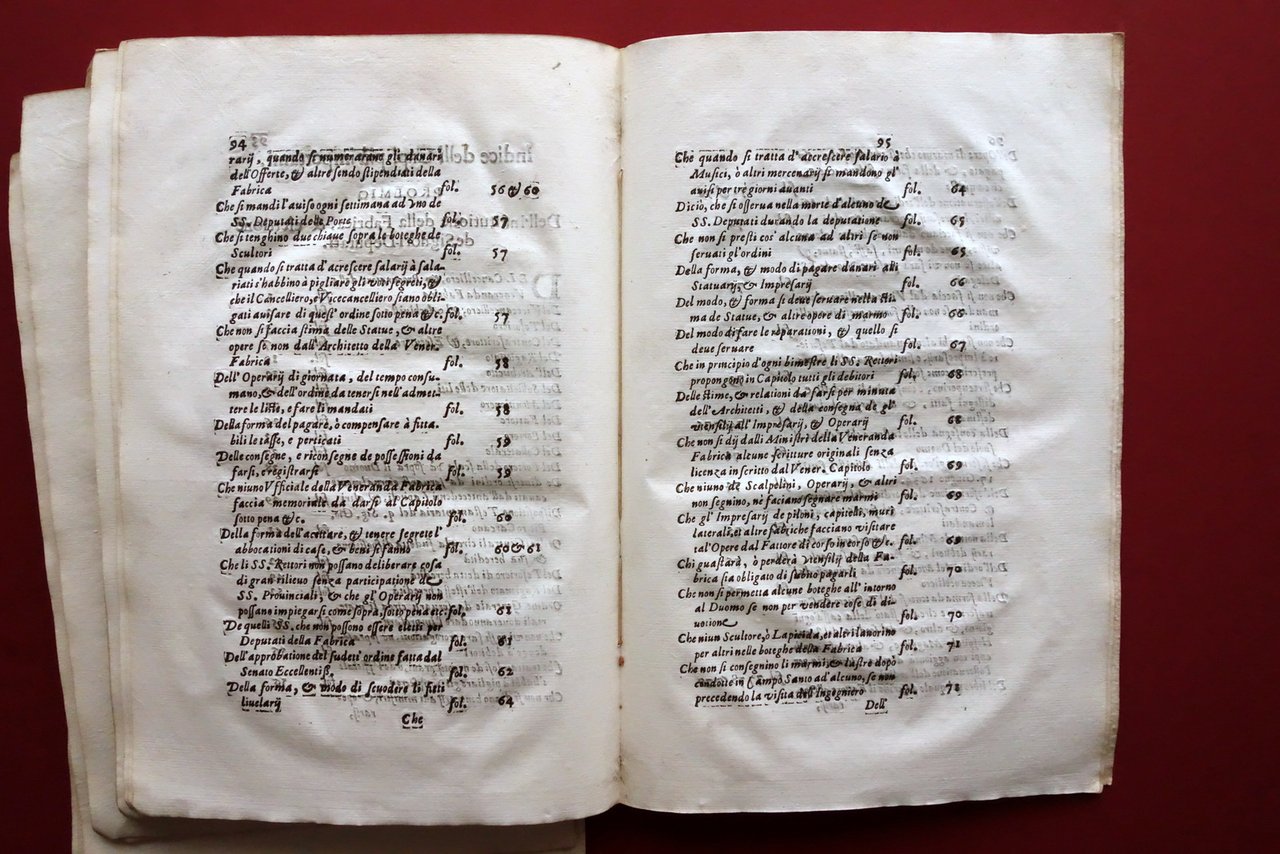 94
rarij, quando si numerarane gli danari
dell'Offerte, & altresendo stipendiati della
Fabrica fol. 56 & 60
Che si mandi l'auiso ogni settimana ad vno de
SS. Deputati delle Porte fol. 57
Che si tenghino due chiaue sopra le boteghe de
Scultori fol. 57
Che quando si tratta d'acrescere salarij à sala-
riati s'habbino à pigliare gli voti segreti, &
che il Cancelliero, e Vicecancelliero siano obli-
gati auisare di quest'ordine sotto pena &c. fol. 57
Che non si faccia stima delle Statue, & altre
opere se non dall'Architetto della Vener.
Fabrica fol. 58
Dell'Operarij di giornata, del tempo consu-
mano, & dell'ordine da tenersi nell'admet-
tere le liste, e fare li mandati fol. 58
Della forma del pagare, ò compensare à fitta-
bili le tasse, e perticati fol. 59
Delle consegne, e riconsegne de possessioni da
farsi, e registrarsi fol. 59
Che niuno Vfficiale della Veneranda Fabrica
faccia memoriale da darsi al Capitolo
sotto pena &c. fol. 60
Della forma dell'acettare, & tenere segrete l'
abbocationi di case, & beni si fanno fol. 60 & 61
Che li SS. Rettori non possano deliberare cosa
di gran rilieuo senza participatione de
SS. Prouinciali, & che gl'Operarij non
possano impiegarsi come sopra, sotto pena etc. fol. 61
De quelli SS. che non possono essere eletti per
Deputati della Fabrica fol. 61
Dell'approbatione del sudett' ordine fatta dal
Senato Eccellentiss. fol. 62
Della forma, & modo di scuodere li fitti
liuelarij fol. 64
Che
95
Che quando si tratta d'accrescere salario à
Musici, ò altri mercenarij si mandono gl'
auisi per trè giorni auanti fol. 64
Di ciò, che si osserua nella morte d'alcuno de
SS. Deputati durando la deputatione fol. 65
Che non si presti cos' alcuna ad altri se non
seruati gl'ordini fol. 65
Della forma, & modo di pagare danari alli
Statuarij, & Impresarij fol. 66
Del modo, & forma si deue seruare nella sti-
ma de Statue, & altre opere di marmo fol. 66
Del modo di fare le reparationi, & quello si
deue seruare fol. 67
Che in principio d'ogni bimestre li SS. Rettori
propongono in Capitolo tutti gli debitori fol. 68
Delle stime, & relationi da farsi per minuta
dell'Architetti, & della consegna de gl'
vtensilij all'Impresarij, & Operarij fol. 68
Che non si dij dalli Ministri della Veneranda
Fabrica alcune scritture originali senza
licenza in scritto dal Vener. Capitolo fol. 69
Che niuno de Scalpelini, Operarij, & altri
non segnino, nè faciano segnare marmi fol. 69
Che gl' Impresarij de piloni, capitelli, muri
laterali, et altre fabriche facciano visitare
tal'Opere dal Fattore di corso in corso &c. fol. 69
Chi guastarà, ò perderà vtensilij della Fa-
brica sia obligato di subito pagarli fol. 70
Che non si permetta alcune boteghe all' intorno
al Duomo se non per vendere cose di di-
uotione fol. 70
Che niun Scultore, ò Lapicida, et altri lauorino
per altri nelle boteghe della Fabrica fol. 71
Che non si consegnino li marmi, & lastre dopò
condotte in Campo Santo ad alcuno, se non
precedendo la visita dell'Ingegniero fol. 71
Dell'